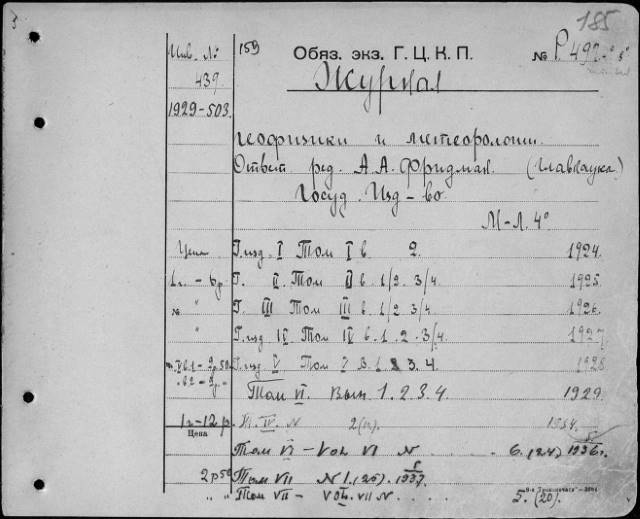 185
Инв. № 159 Обяз. экз. Г. Ц. К. П. № Р. 492
439 Журнал
1929-503.
геофизики и метеорологии.
Ответ. ред. А. А. Фридман. (Главнаука)
Госуд. Изд-во
М-Л. 4°
Цена Г. изд. I Том I в. 2. 1924.
1 г. - 6 р. Г. II. Том II в. 1/2. 3/4. 1925.
№ " Г. III Том III в. 1/2 3/4. 1926.
" Г. изд IV. Том IV в. 1. 2. 3/4. 1927.
Г. изд V Том V В. 1. 2 3. 4. 1928
Том VI. Вып. 1. 2. 3. 4. 1929.
1 г-12 р. Т. IV. N 2(11). 1934.
Цена
Том VI - Vol. VI N 6. (24) 1936 г.
2 р 50 Том VII N 1. (25). 1937.
" " Том VII - Vol. VII N 5. (20).